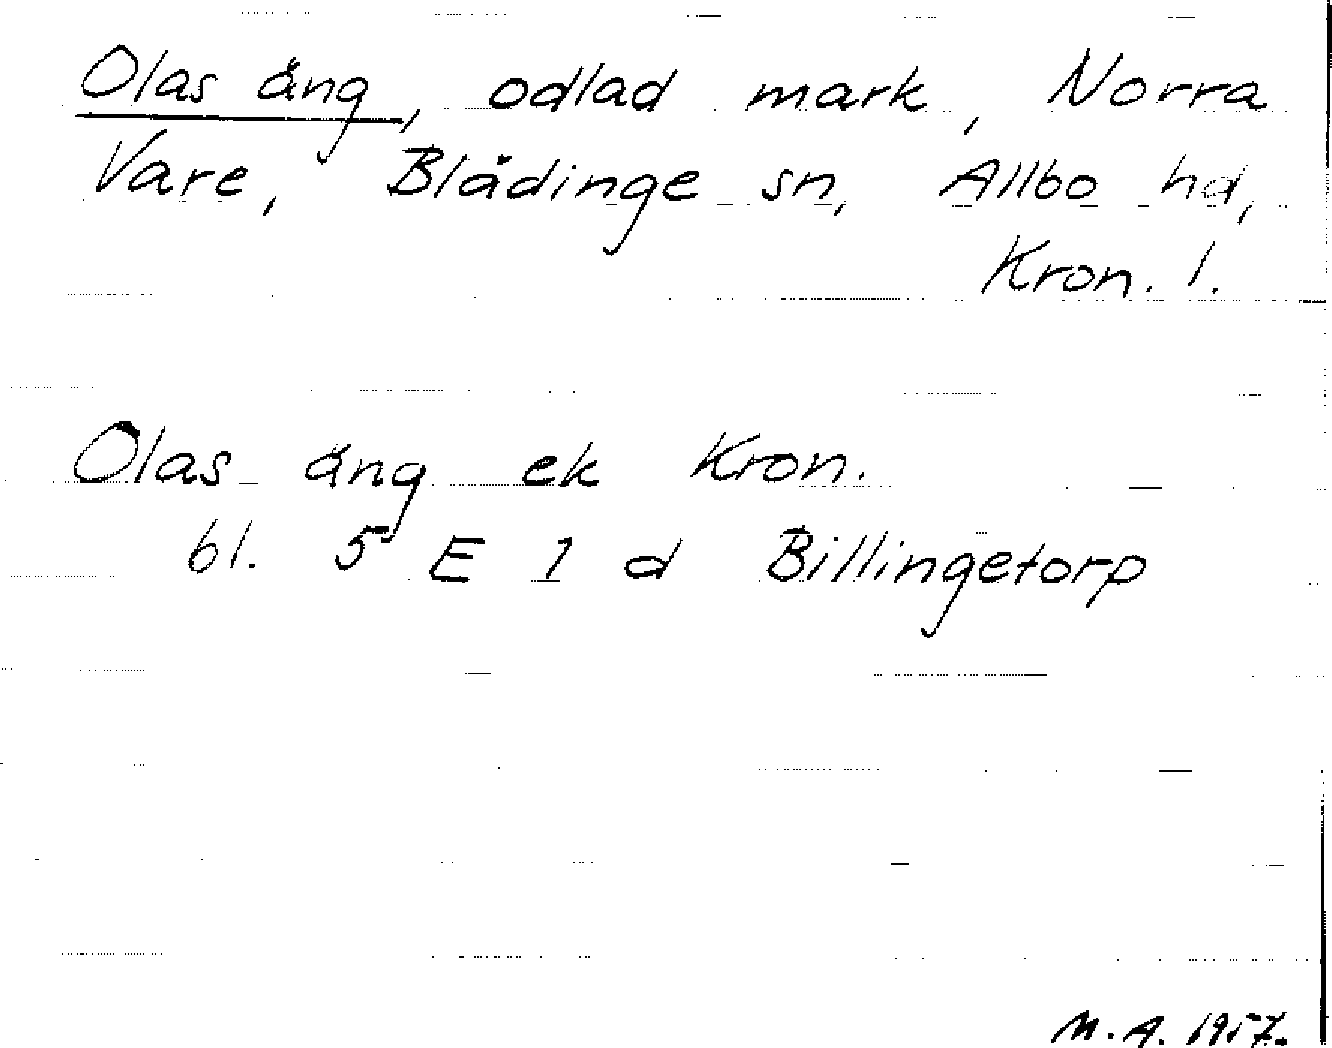 Olas äng, odlad mark, Norra
Vare, Blädinge sn, Allbo hd,
Kron. l.
Olas äng ek Kron.
bl. 5 E 1 d Billingetorp
M.A. 1957.